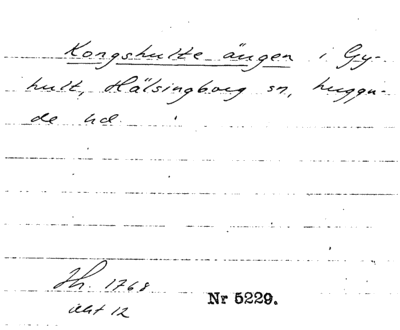 Kongshulte ängen i Gy-
hult, Hälsingborg sn, luggu-
de hd
Th. 1768
akt 12
Nr 5229.